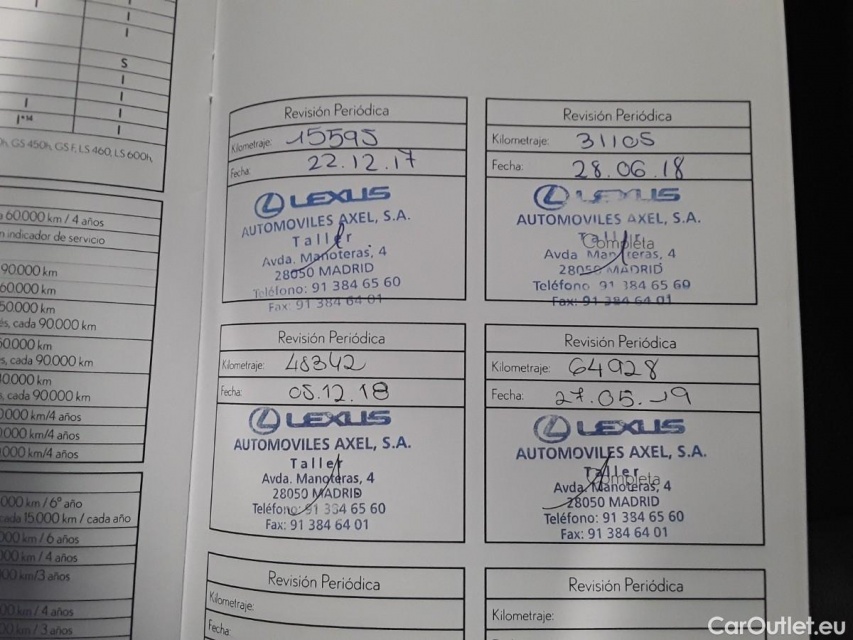 I
I
I
S
I
I
I
I
I*14
I
0h, GS 450h, GS F, LS 460, LS 600h,
60.000 km / 4 años
n indicador de servicio
90.000 km
60.000 km
50.000 km
s, cada 90.000 km
50.000 km
s, cada 90.000 km
30.000 km
s, cada 90.000 km
0.000 km/4 años
.000 km/4 años
.000 km/4 años
000 km / 6º año
cada 15.000 km / cada año
000 km / 6 años
000 km / 4 años
000 km/3 años
00 km / 4 años
00 km / 3 años
Revisión Periódica
Kilometraje: 15595
Fecha: 22.12.17
LEXUS
AUTOMOVILES AXEL, S.A.
Taller
Avda. Manoteras, 4
28050 MADRID
Teléfono: 91 384 65 60
Fax: 91 384 64 01
Revisión Periódica
Kilometraje: 31105
Fecha: 28.06.18
LEXUS
AUTOMOVILES AXEL, S.A.
Taller
Completa
Avda Manoteras, 4
28050 MADRID
Teléfono 91 384 65 60
Fax: 91 384 64 01
Revisión Periódica
Kilometraje: 48342
Fecha: 05.12.18
LEXUS
AUTOMOVILES AXEL, S.A.
Taller
Avda. Manoteras, 4
28050 MADRID
Teléfono: 91 384 65 60
Fax: 91 384 64 01
Revisión Periódica
Kilometraje: 64928
Fecha: 27.05.19
LEXUS
AUTOMOVILES AXEL, S.A.
Taller
Completa
Avda. Manoteras, 4
28050 MADRID
Teléfono: 91 384 65 60
Fax: 91 384 64 01
Revisión Periódica
Kilometraje:
Fecha:
Revisión Periódica
Kilometraje:
CarOutlet.eu